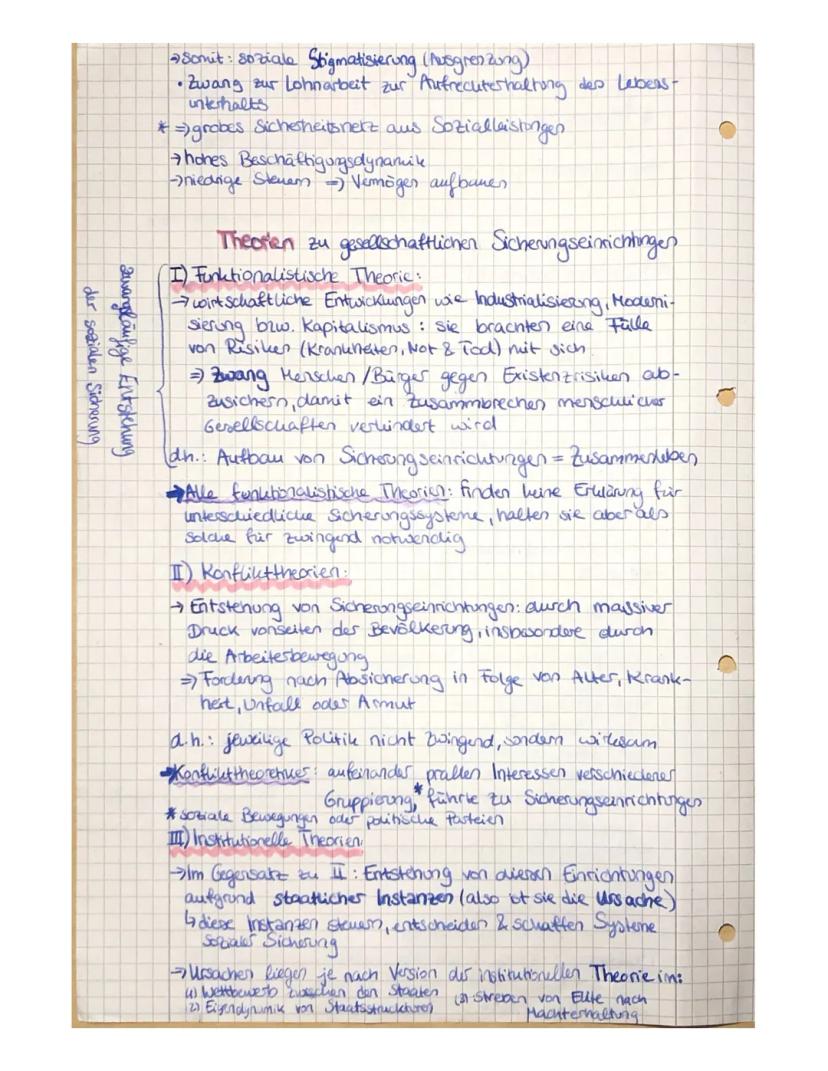 →somit: soziale Stigmatisierung (Ausgrenzung)
• Zwang zur Lohnarbeit zur Aufrechterhaltung des Lebens-
unterhalts
* ⇒ grobes Sicherheitsnetz aus Sozialleistungen
→ hohes Beschäftigungsdynamik
→ niedrige Steuern ⇒ Vermögen aufbauen
Theorien zu gesellschaftlichen Sicherungseinrichtungen
zwangsläufige Entstehung
der sozialen Sicherung
I) Funktionalistische Theorie:
→ wirtschaftliche Entwicklungen wie Industrialisierung, Moderni-
sierung bzw. Kapitalismus: sie brachten eine Fülle
von Risiken (Krankheiten, Not & Tod) mit sich
⇒ Zwang Menschen / Bürger gegen Existenzrisiken ab-
zusichern, damit ein Zusammbrechen menschlicher
Gesellschaften verhindert wird
d.h.: Aufbau von Sicherungseinrichtungen = Zusammenleben
→Alle funktionalistische Theorien: finden keine Erklärung für
unterschiedliche Sicherungssysteme, halten sie aber als
solche für zwingend notwendig
II) Konflikttheorien:
→ Entstehung von Sicherungseinrichtungen: durch massiver
Druck vonseiten der Bevölkerung, insbesondere durch
die Arbeiterbewegung
⇒ Forderung nach Absicherung in Folge von Alter, Krank-
heit, Unfall oder Armut
d.h.: jeweilige Politik nicht zwingend, sondern wirksam
→Konflikttheoretiker: aufeinander prallen Interessen verschiedener
Gruppierung,* führte zu Sicherungseinrichtungen
* soziale Bewegungen oder politische Parteien
III) Institutionelle Theorien:
→ Im Gegensatz zu II: Entstehung von diesen Einrichtungen
aufgrund staatlicher Instanzen (also ist sie die Ursache)
↳ diese Instanzen steuern, entscheiden & schaffen Systeme
sozialer Sicherung
→ Ursachen liegen je nach Version der institutionellen Theorie im:
(1) Wettbewerb zwischen den Staaten (3) Streben von Elite nach
(2) Eigendynamik von Staatsstrukturen Machterhaltung